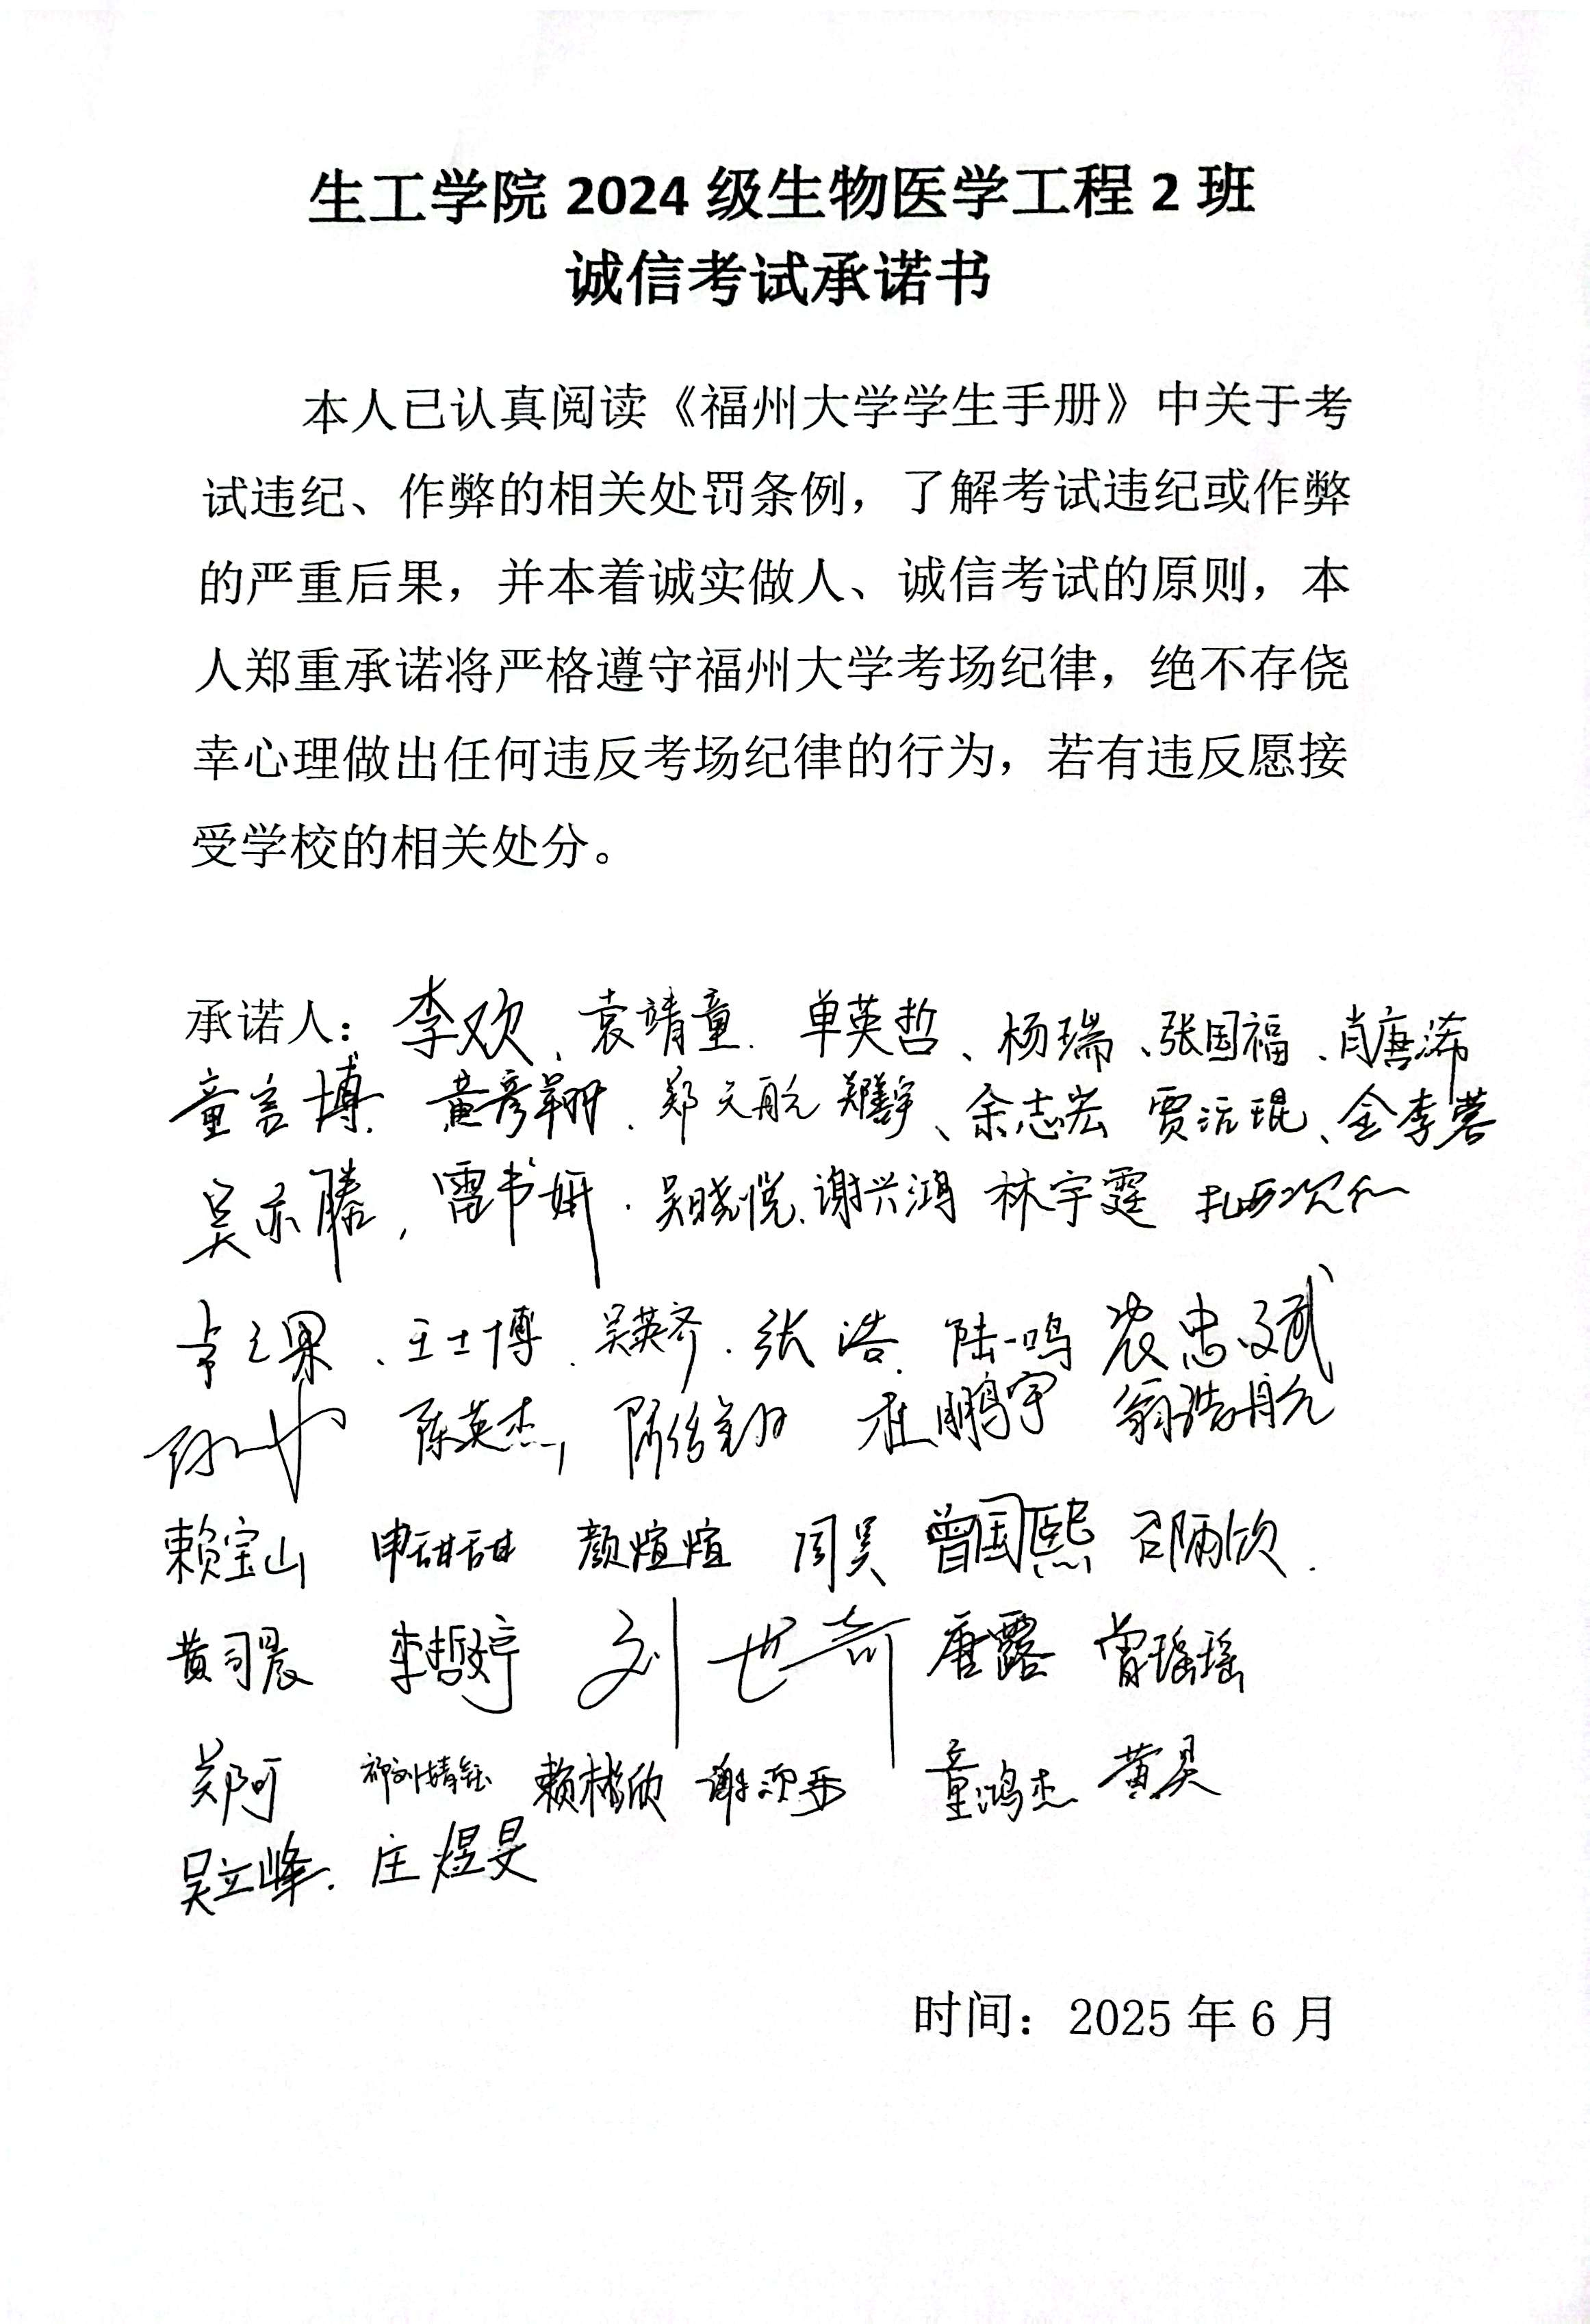 生工学院 2024 级生物医学工程 2 班
诚信考试承诺书
本人已认真阅读《福州大学学生手册》中关于考
试违纪、作弊的相关处罚条例，了解考试违纪或作弊
的严重后果，并本着诚实做人、诚信考试的原则，本
人郑重承诺将严格遵守福州大学考场纪律，绝不存侥
幸心理做出任何违反考场纪律的行为，若有违反愿接
受学校的相关处分。
承诺人：李欢、袁靖童. 单英哲、杨瑞、张国福、肖唐浠
童言博. 黄彦翔. 郑天航 余志宏 金李蓉
吴亦滕, 雷书妍. 吴晓悦. 谢兴鸿 林宇霆 扎西次仁
王士博. 吴英齐. 张浩. 陆一鸣 农忠斌
陈英杰, 杜鹏宇 翁浩航
赖宝山 申甜甜 颜煊煊 周昊 曾国熙
黄司晨 李哲婷 刘世奇 唐露 曾瑶瑶
郑可 童鸿杰 黄昊
吴立峰. 庄煜旻
时间：2025 年 6 月